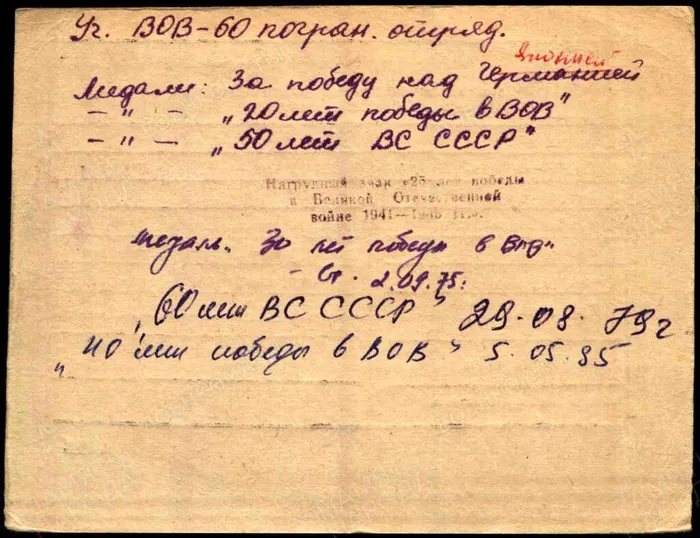 Уч. ВОВ-60 погран. отряд.
Японией
Медали: За победу над Германией
– " – „20 лет победы в ВОВ"
– " – „50 лет ВС СССР"
Нагрудный знак «25 лет победы
в Великой Отечественной
войне 1941—1945 гг.».
медаль „30 лет победы в ВОВ"
2.09.75г
„60 лет ВС СССР" 29.08.79г
„40 лет победы в ВОВ" 5.05.85